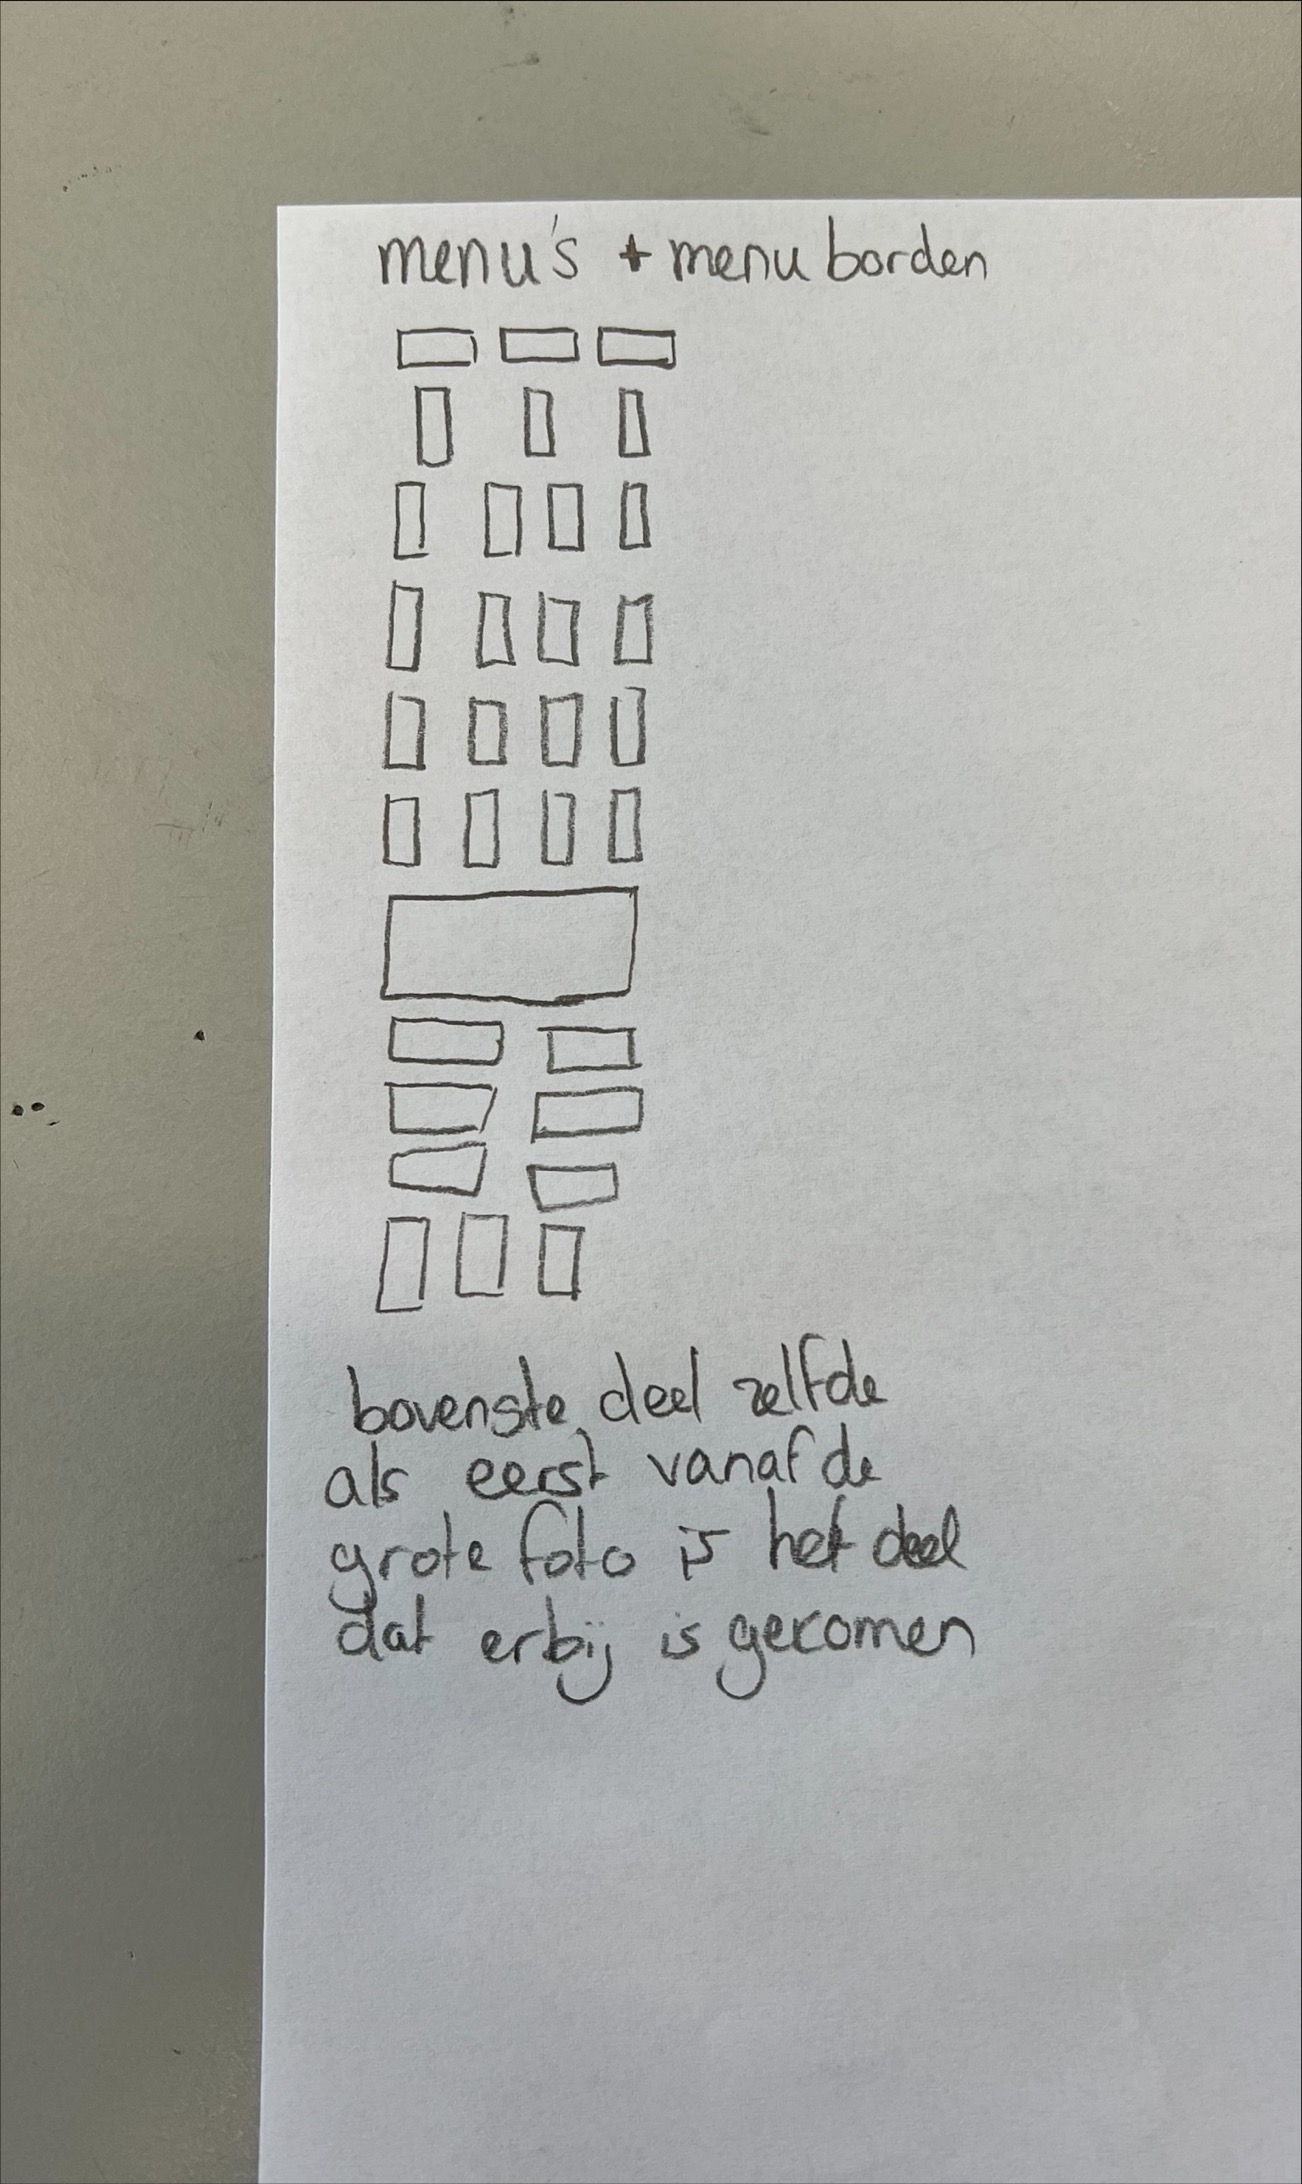 menu's + menu borden
bovenste deel zelfde
als eerst vanaf de
grote foto is het deel
dat erbij is gekomen